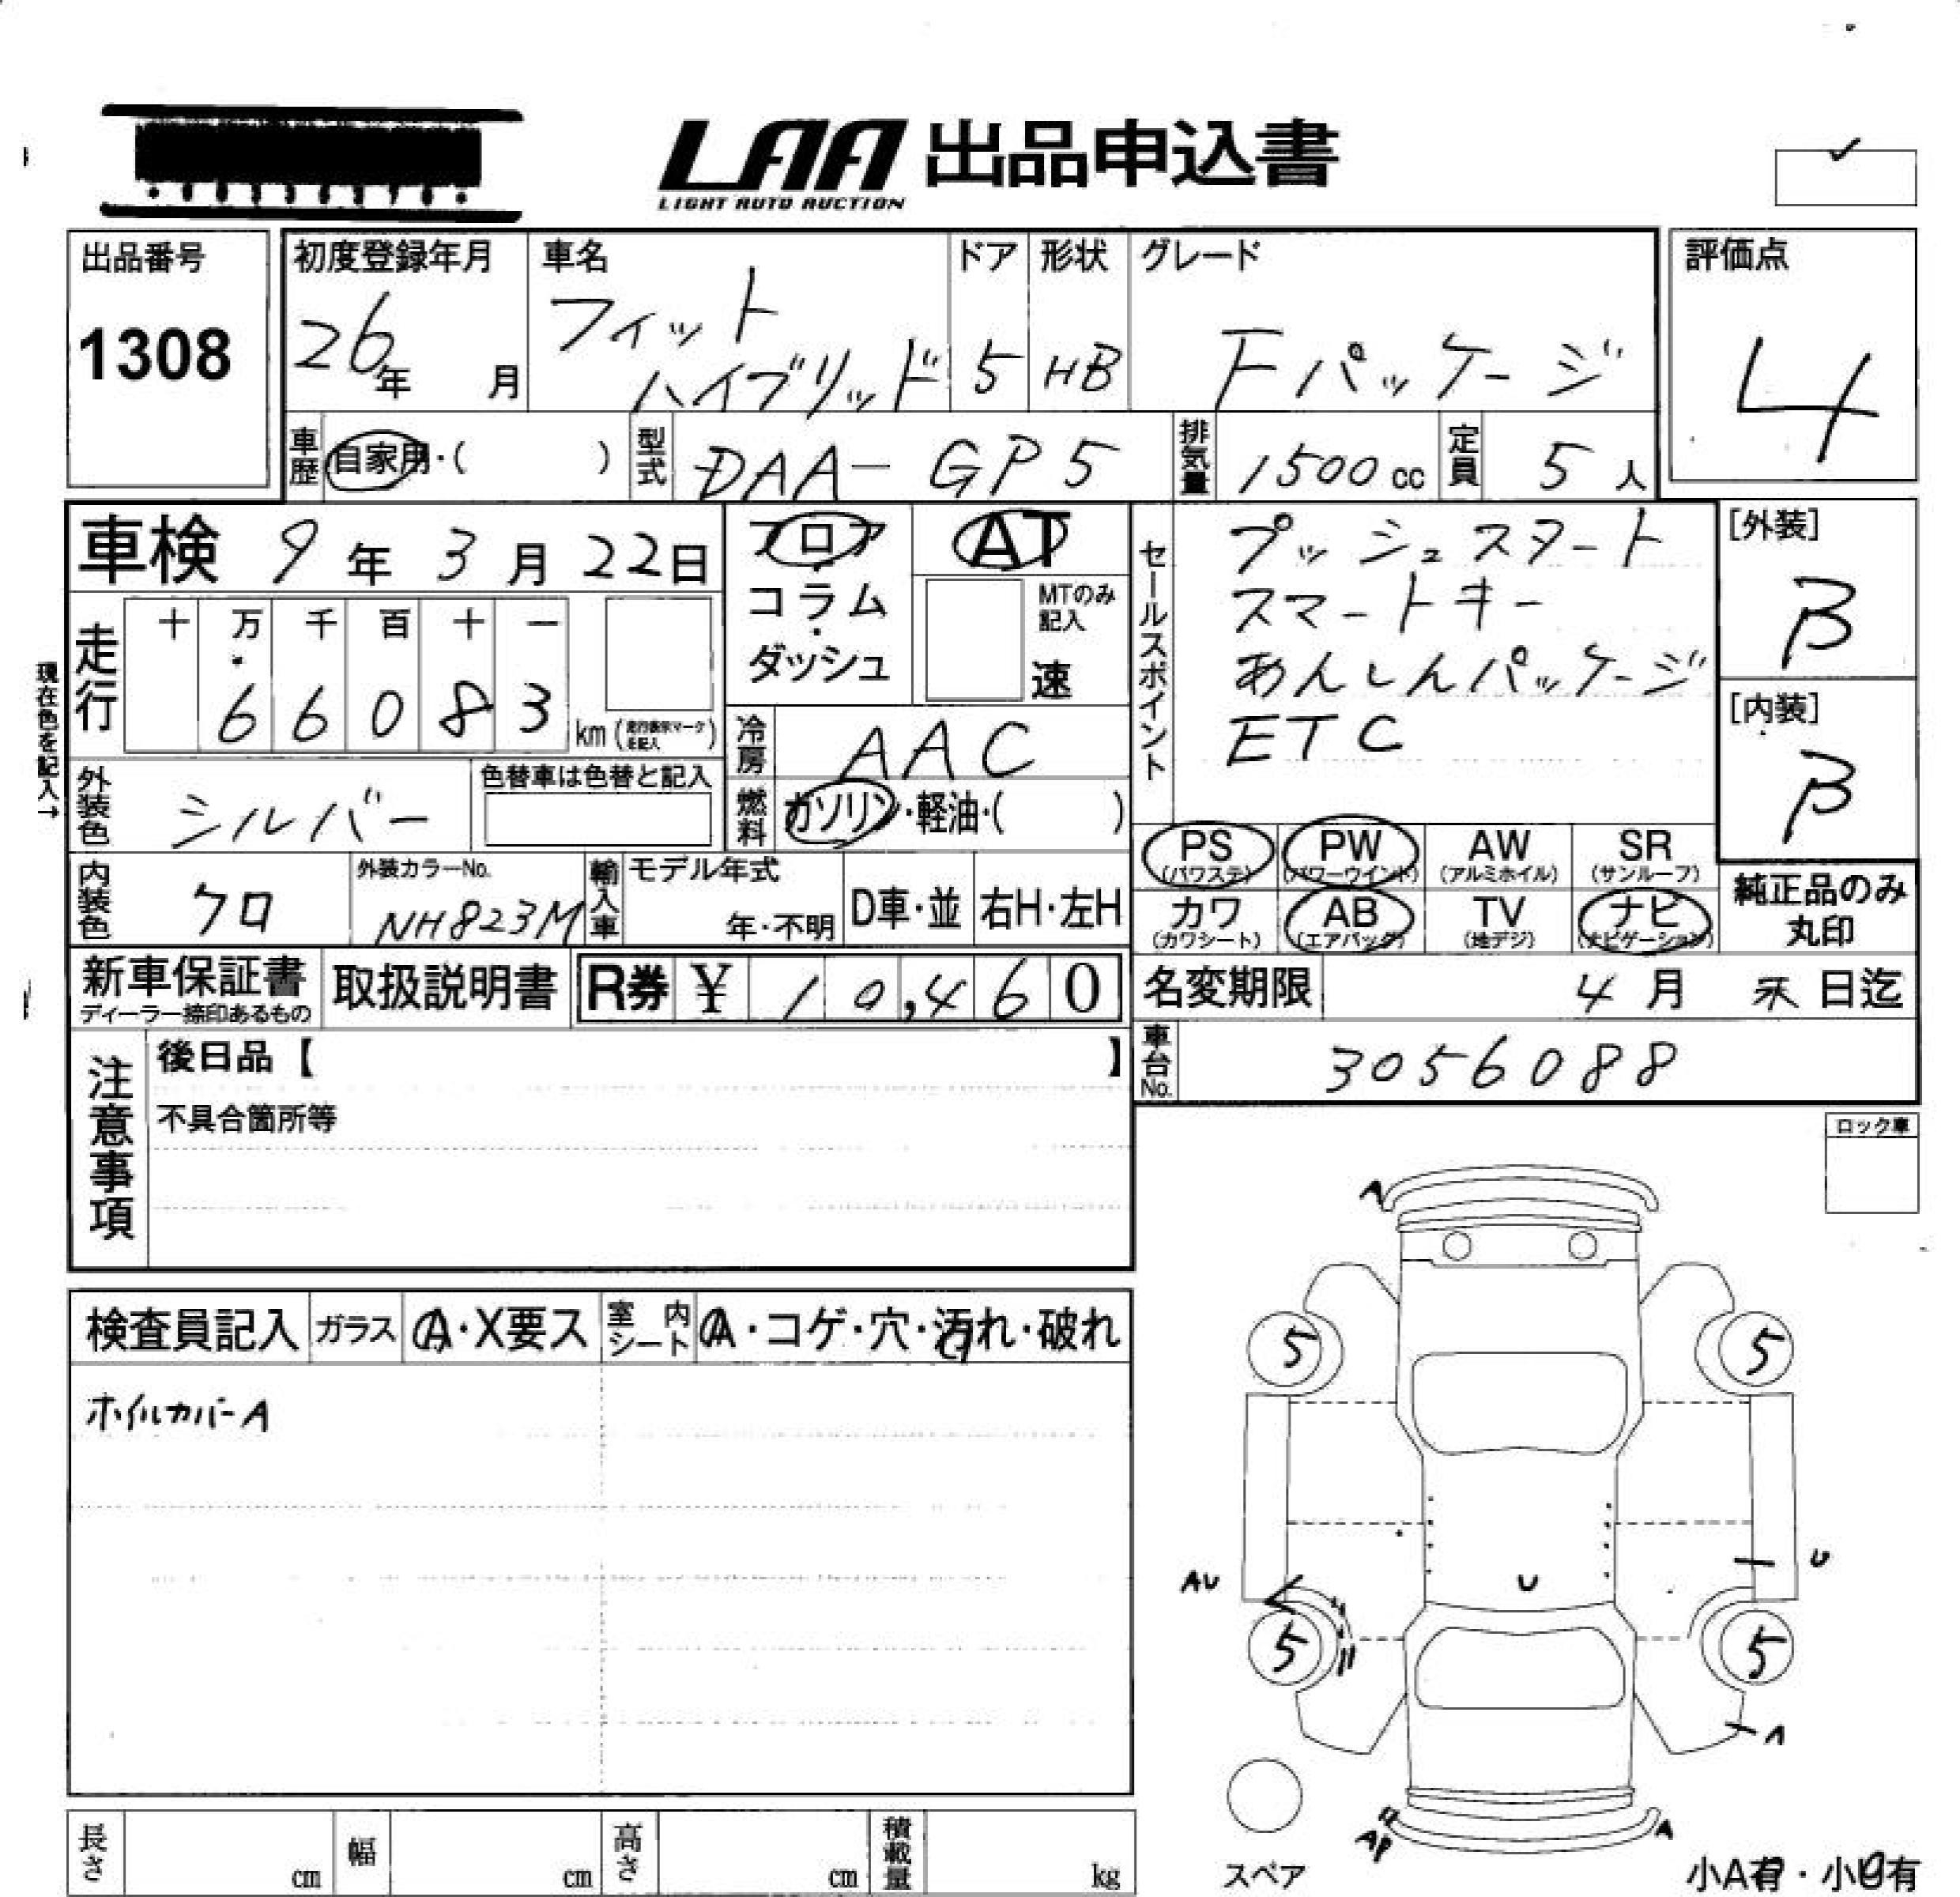 LAA 出品申込書
LIGHT AUTO AUCTION
出品番号
1308
初度登録年月
26年 月
車名
フィット
ハイブリッド
ドア
5
形状
HB
グレード
Fパッケージ
評価点
4
車歴 自家用・( )
型式 DAA-GP5
排気量 1500cc
定員 5人
車検 9年3月22日
現在色を記入→
走行
十 万 千 百 十 一
6 6 0 8 3 km
フロア
コラム
ダッシュ
AT
MTのみ
記入
速
冷房 AAC
燃料 ガソリン・軽油・( )
セールスポイント
プッシュスタート
スマートキー
あんしんパッケージ
ETC
[外装]
B
[内装]
B
外装色 シルバー
色替車は色替と記入
PS PW AW SR
(パワステ) (パワーウインド) (アルミホイル) (サンルーフ)
カワ AB TV ナビ
(カワシート) (エアバッグ) (地デジ) (ナビゲーション)
純正品のみ
丸印
内装色 クロ
外装カラーNo.
NH823M
輸入車
モデル年式
年・不明
D車・並
右H・左H
新車保証書
ディーラー捺印あるもの
取扱説明書
R券 ¥ 10,460
名変期限 4月末日迄
車台No. 3056088
注意事項
後日品【 】
不具合箇所等
ロック車
検査員記入 ガラス A・X要ス 室内シート A・コゲ・穴・汚れ・破れ
ホイルカバーA
A
5 5
AU U U
5 5
A
AP A
スペア
小A有・小U有
長さ cm 幅 cm 高さ cm 積載量 kg